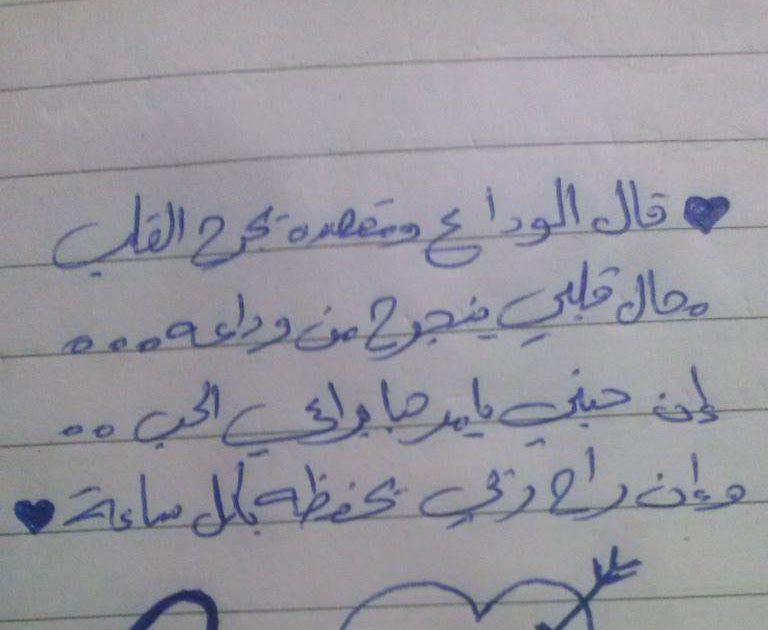 ♥ قال الوداع ومقصده تجرح القلب
محال قلبي ينجرح من وداعه...
إن حبني يامرحبا براعي الحب..
وإن راح ربي يحفظه بكل ساعة ♥